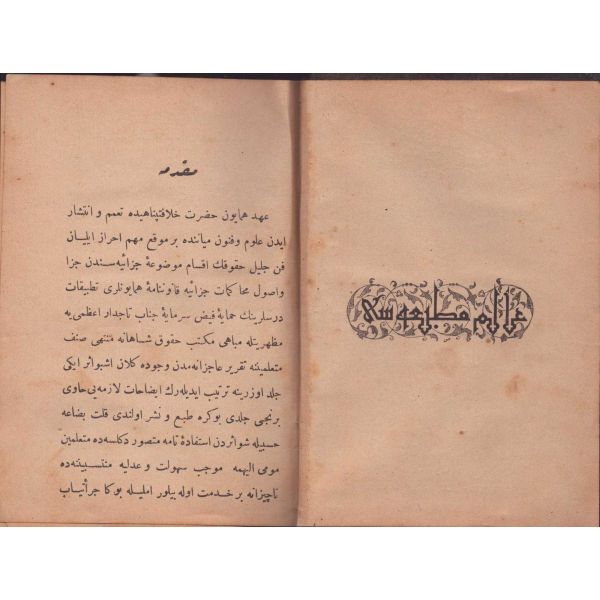 مقدمه
عهد همايون حضرت خلافتپناهيده تعمم و انتشار
ايدن علوم وفنون مياننده بر موقع مهم احراز ايليان
فن جليل حقوقك اقسام موضوعهٔ جزائيه سندن جزا
واصول محاكمات جزائيه قانوننامهٔ همايونلرى تطبيقات
درسلرينك حمايهٔ فيض سرمايهٔ جناب تاجدار اعظمى يه
مظهريتله مباهى مكتب حقوق شاهانه منتهى صنف
متعلميننه تقرير عاجزانه مدن وجوده كلان اشبواثر ايكى
جلد اوزرينه ترتيب ايديله رك ايضاحات لازمه يى حاوى
برنجى جلدى بوكره طبع و نشر اولندى قلت بضاعه
حسبيله شواثردن استفادهٔ تامه متصور دكلسه ده متعلمين
مومى اليهمه موجب سهولت و عدليه منتسبيننه ده
ناچيزانه بر خدمت اوله بيلور امليله بوكا جرأتياب
عالم مطبعه سى